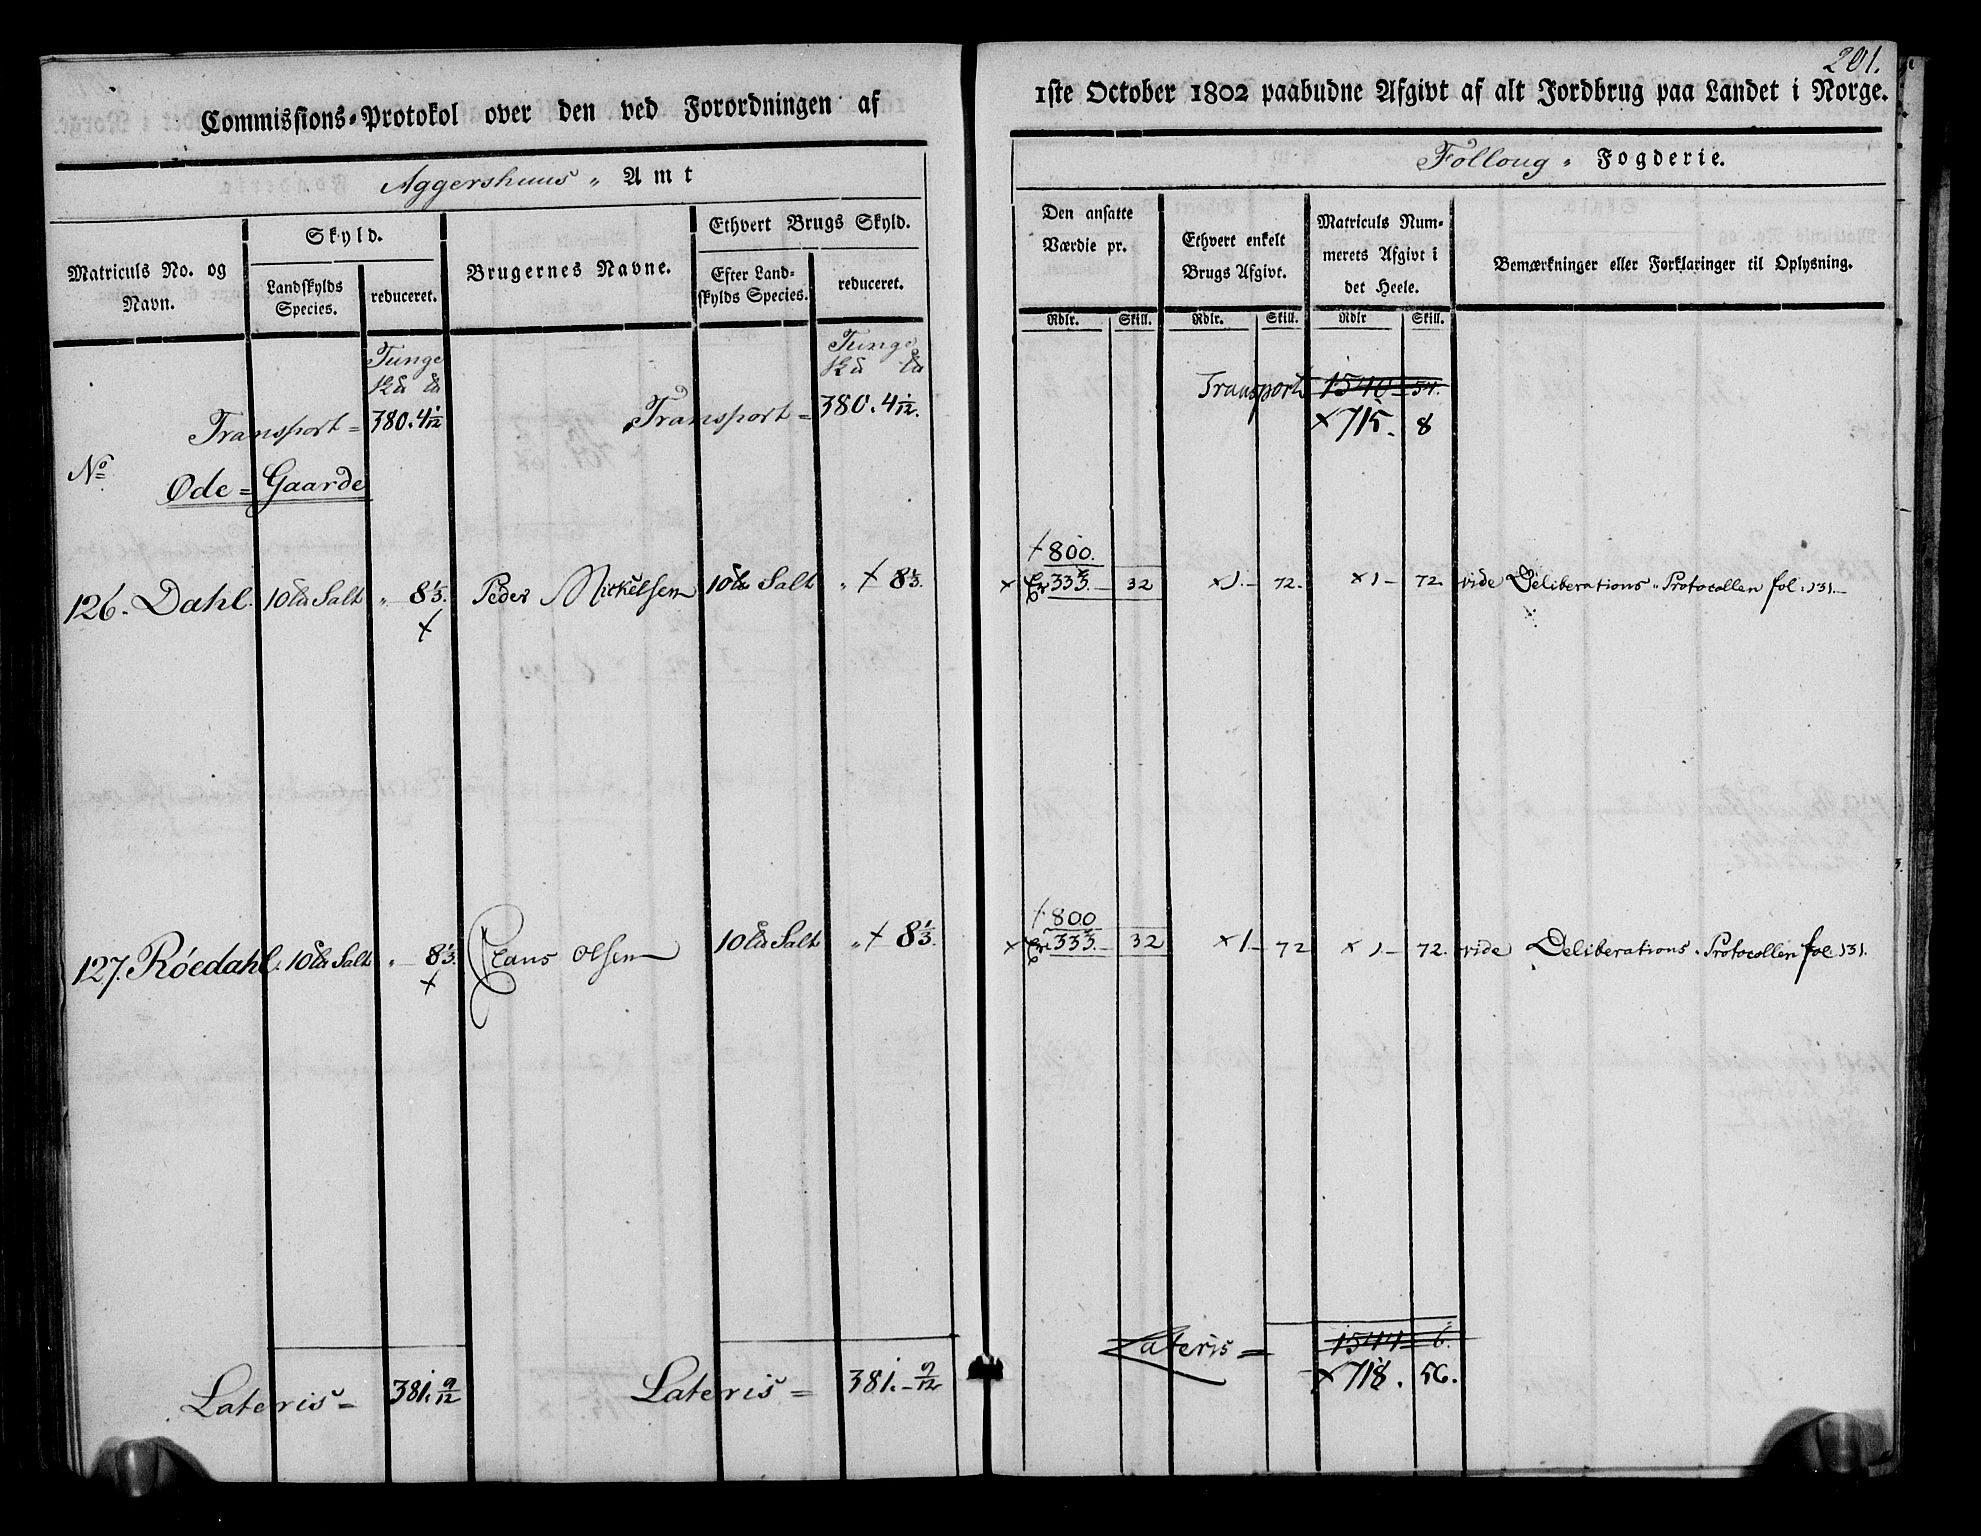 201.
Commissions-Protokol over den ved Forordningen af
1ste October 1802 paabudne Afgivt af alt Jordbrug paa Landet i Norge.
Aggershuus „ Amt
Folloug „ Fogderie.
Matriculs No. og Navn.
Skyld.
Landskylds Species.
reduceret.
Brugernes Navne.
Ethvert Brugs Skyld.
Efter Landskylds Species.
reduceret.
Den ansatte Værdie pr.
Ethvert enkelt Brugs Afgivt.
Matriculs Nummerets Afgivt i det Heele.
Bemærkninger eller Forklaringer til Oplysning.
Rdlr. Skill. Rdlr. Skill. Rdlr Skill.
Tunge Tunge
Transport = 380. 4 1/12 Transport = 380. 4 1/12. Transport 1540 - 54.
× 715. 8
No
Øde = Gaarde
× 800.
126. Dahl. 10 Salt „ 8 1/3. Peder Mickelsen 10 Salt „ × 8 1/3. × 333. - 32 × 1. - 72. × 1 - 72. vide Deliberations „ Protocollen fol: 131.
×
× 800
127. Röedahl. 10 Salt „ 8 1/3. Clans Olsen 10 Salt „ × 8 1/3. × 333. - 32 × 1 - 72 × 1. - 72. vide Deliberations „ Protocollen fol 131.
×
Lateris = 381. 9/12 Lateris = 381. - 9/12 Lateris = 1544 - 6.
× 718. 56.